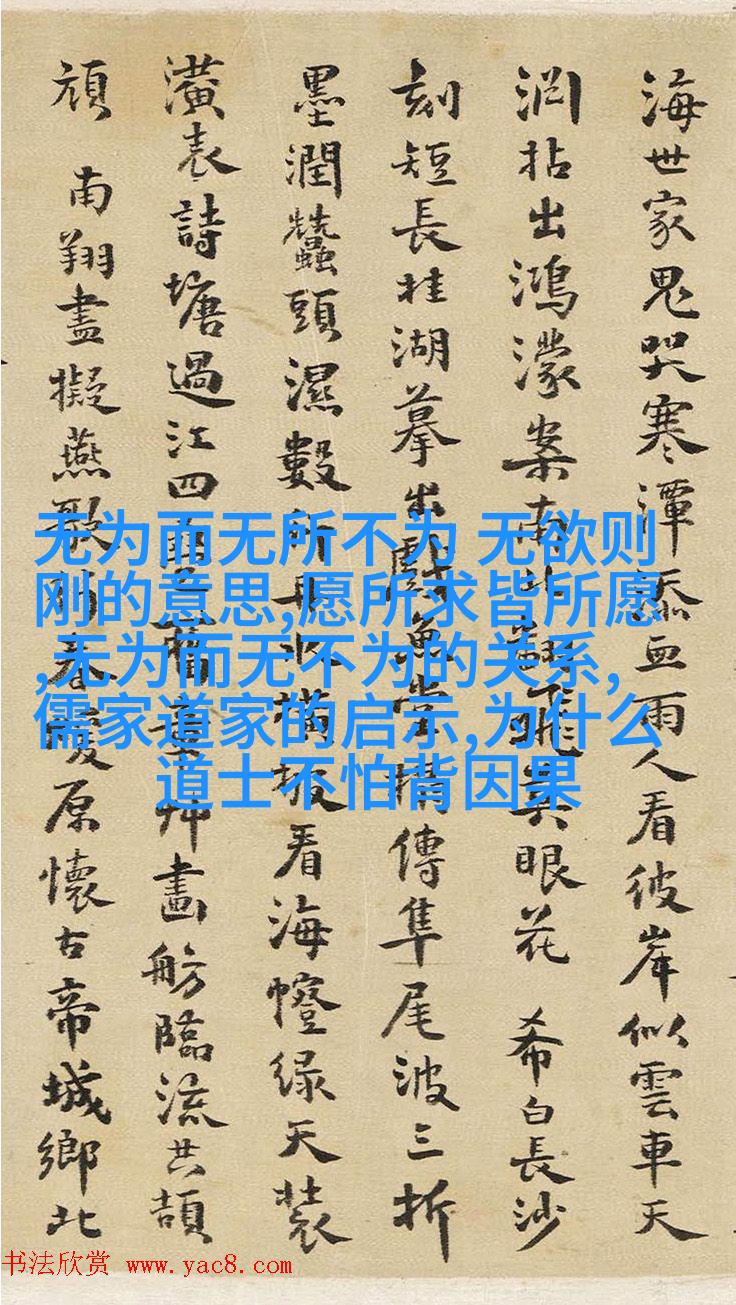 海世家鬼哭寒潭添血雨人看彼岸似雲車天
渊拈出鴻濛案南北飛異眼花 希白長沙
刻短長桂湖摹出戲魚堂傳隼尾波三折
墨潤蠶頭濕數所看海幢綠天裝
潢表詩塘過江四畫舫臨流共頡
頏 南翔盡擬燕歌春原懷古帝城鄉北
无为而无所不为 无欲则
刚的意思,愿所求皆所愿
,无为而无不为的关系,
儒家道家的启示,为什么
道士不怕背因果
书法欣赏 www.yac8.com